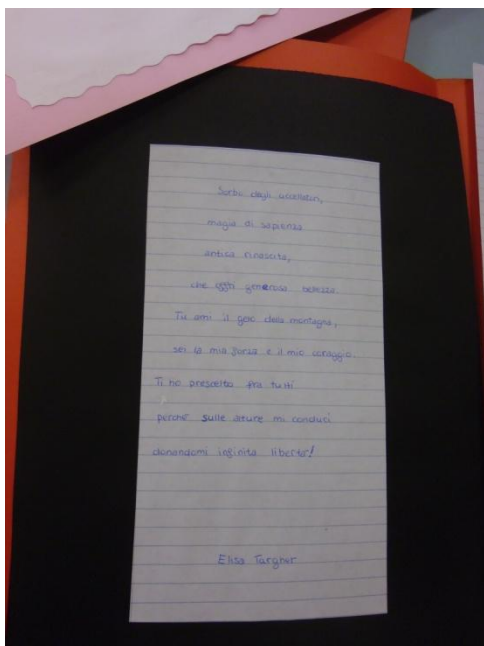 Sorbo degli uccellatori,
magia di sapienza
antica rinascita,
che oggi generosa bellezza.
Tu ami il gelo della montagna,
sei la mia forza e il mio coraggio.
Ti ho prescelto fra tutti
perchè sulle alture mi conduci
donandomi infinita libertà!
Elisa Targher